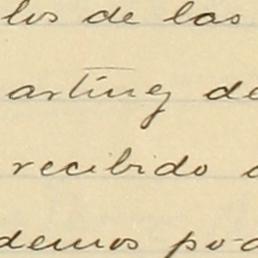 los de las
artíng de
recibido
demos pod